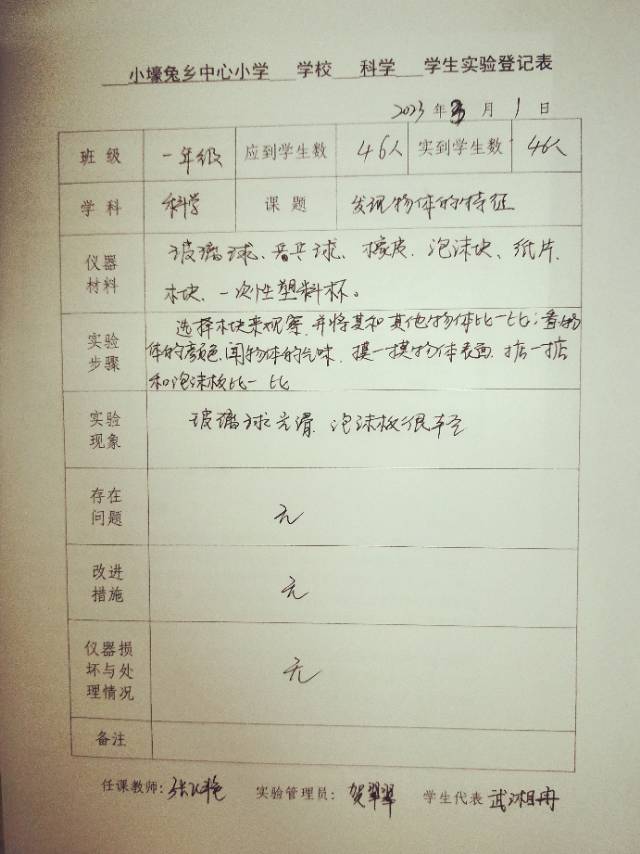 小壕兔乡中心小学 学校 科学 学生实验登记表
2023 年 3 月 1 日
班级 一年级 应到学生数 46人 实到学生数 46人
学科 科学 课题 发现物体的特征
仪器材料 玻璃球、乒乓球、橡皮、泡沫块、纸片、
木块、一次性塑料杯。
实验步骤 选择木块来观察,并将其和其他物体比一比:看物
体的颜色,闻物体的气味,摸一摸物体表面,掂一掂
和泡沫板比一比
实验现象 玻璃球光滑,泡沫板很轻
存在问题 无
改进措施 无
仪器损坏与处理情况 无
备注
任课教师: 实验管理员: 贺翠翠 学生代表 武湘冉